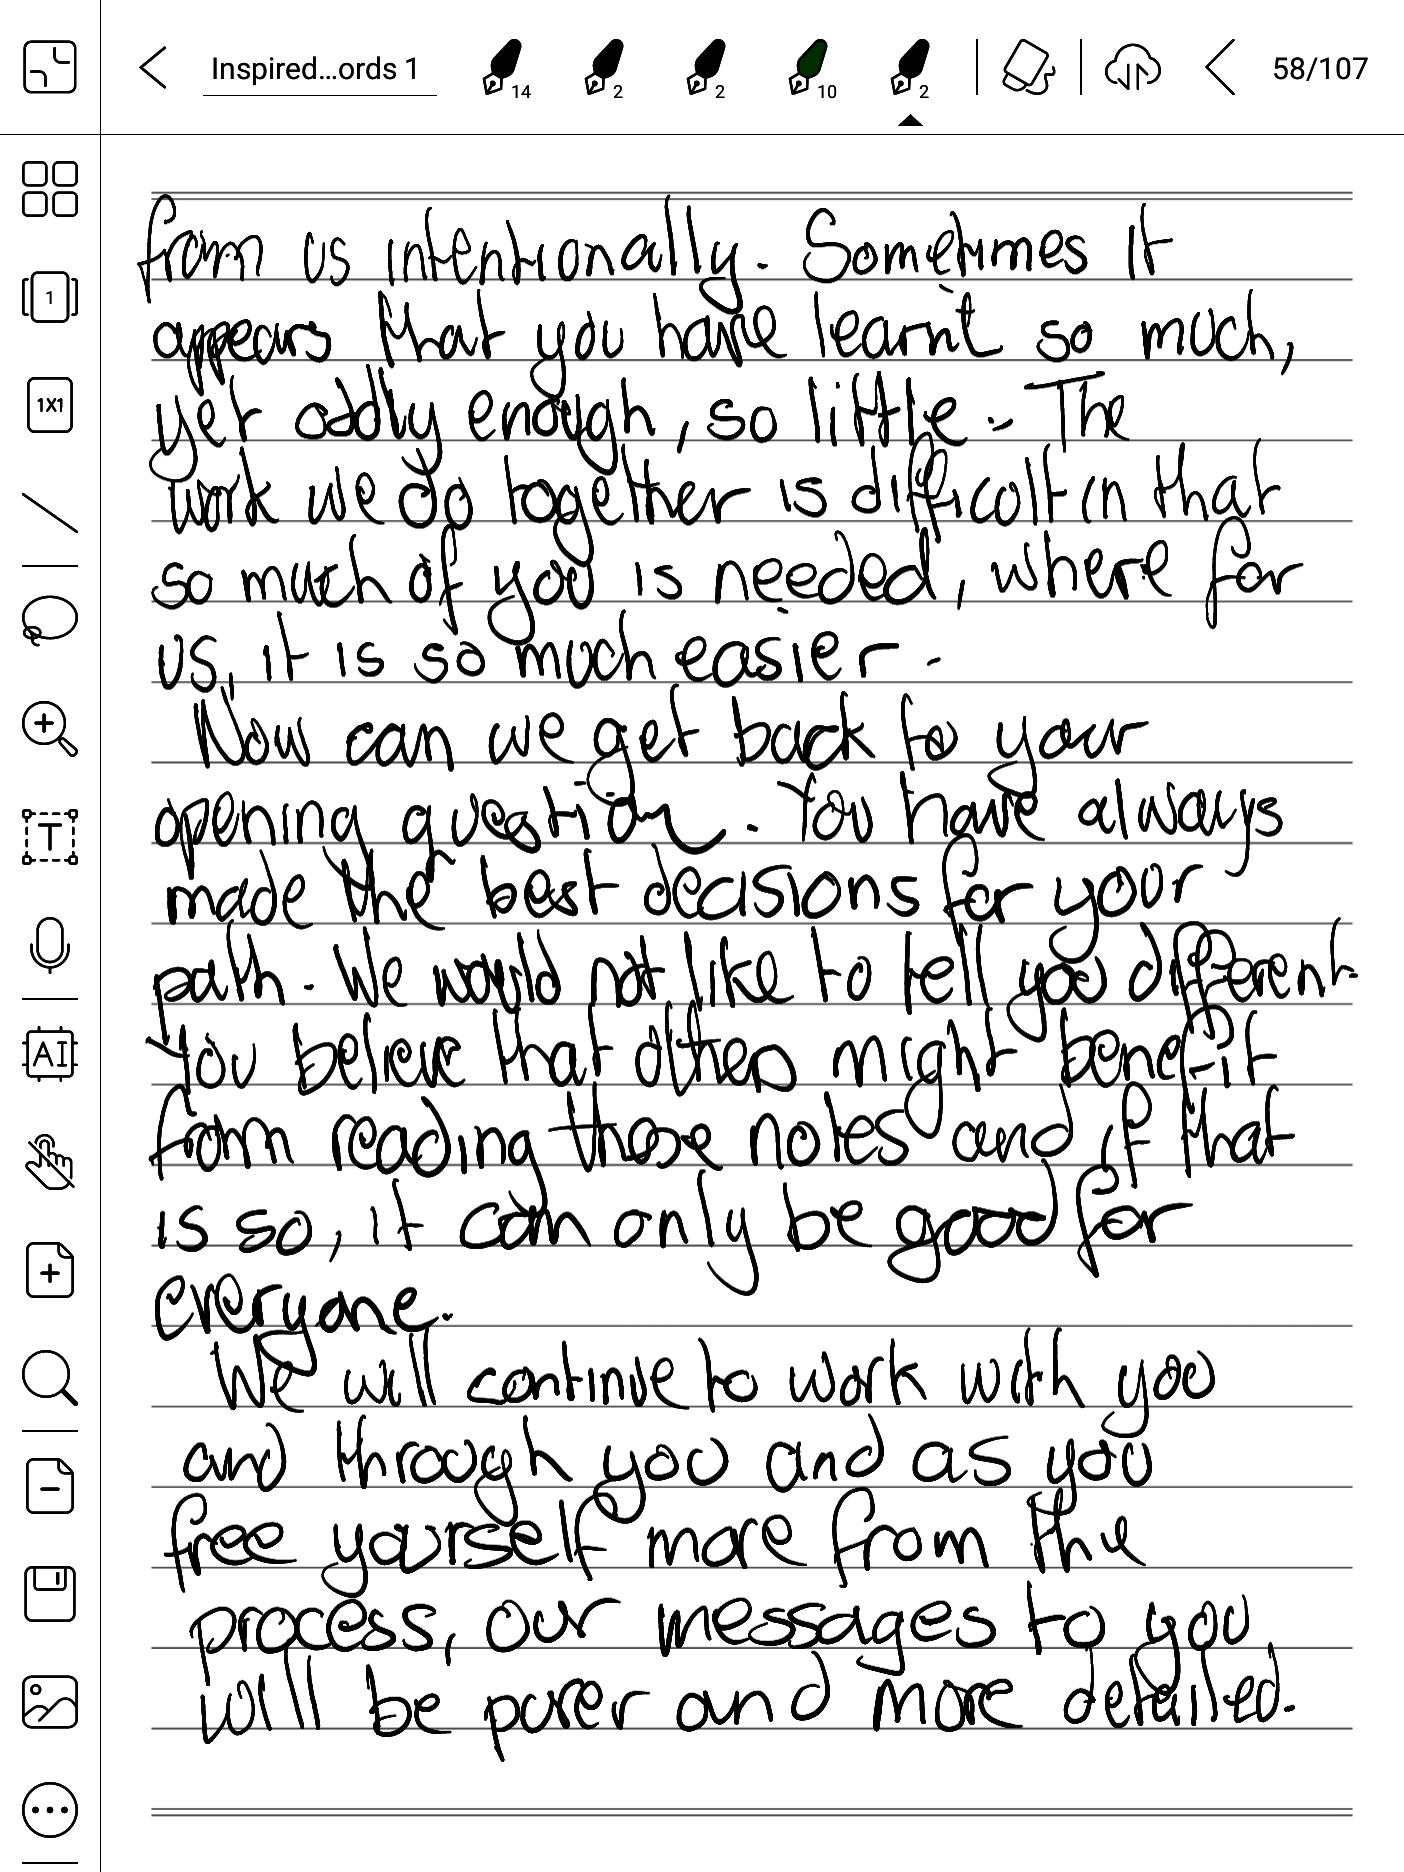 Inspired...ords 1
14
2
2
10
2
58/107
1
1X1
T
AI
from us intentionally. Sometimes it
appears that you have learnt so much,
yet oddly enough, so little. The
work we do together is difficult in that
so much of you is needed, where for
us, it is so much easier.
Now can we get back to your
opening question. You have always
made the best decisions for your
path. We would not like to tell you different.
You believe that others might benefit
from reading these notes and if that
is so, it can only be good for
everyone.
We will continue to work with you
and through you and as you
free yourself more from the
process, our messages to you
will be purer and more detailed.